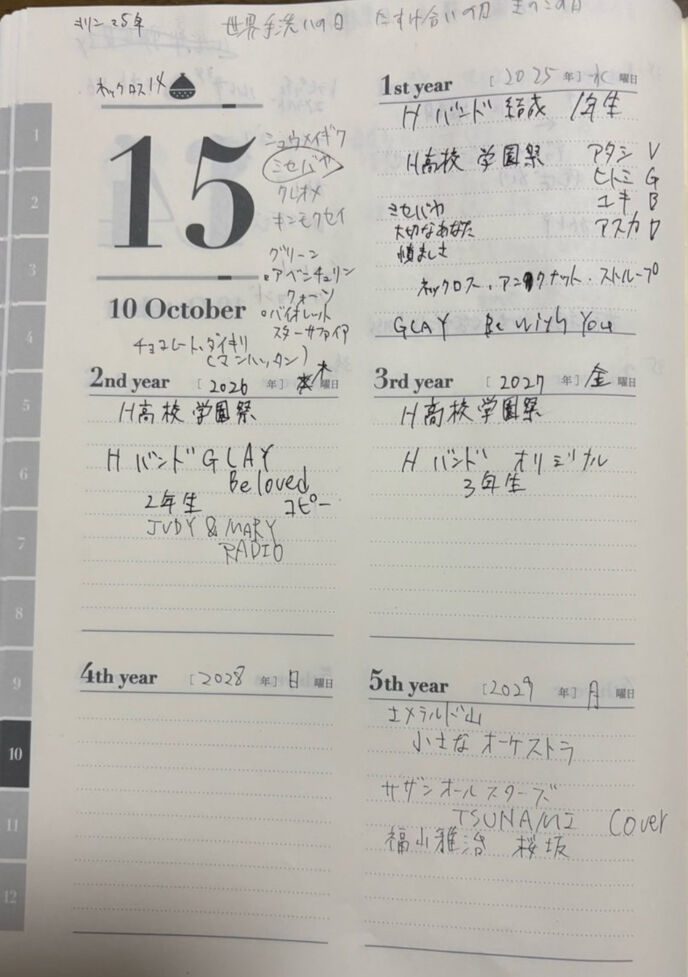 世界手洗いの日 たすけ合いの日 きのこの日
ネックロス14
15
10 October
シュウメイギク
ミセバヤ
クレオメ
キンモクセイ
グリーン
アベンチュリン
クォーツ
バイオレット
スターサファイア
チョコレート、ダイキリ
(マンハッタン)
1st year [2025年] 水曜日
H バンド 結成 1年生
H高校 学園祭
アタシ V
ヒトミ G
ユキ B
アスカ D
ミセバヤ
大切なあなた
慎ましさ
ネックロス・アンクナット・ストループ
GLAY Be with You
2nd year [2026年] 木曜日
H高校 学園祭
H バンド GLAY
Beloved
2年生 コピー
JUDY & MARY
RADIO
3rd year [2027年] 金曜日
H高校 学園祭
H バンド オリジナル
3年生
4th year [2028年] 日曜日
5th year [2029年] 月曜日
エメラルド山
小さな オーケストラ
サザンオールスターズ
TSUNAMI Cover
福山雅治 桜坂
1
2
3
4
5
6
7
8
9
10
11
12